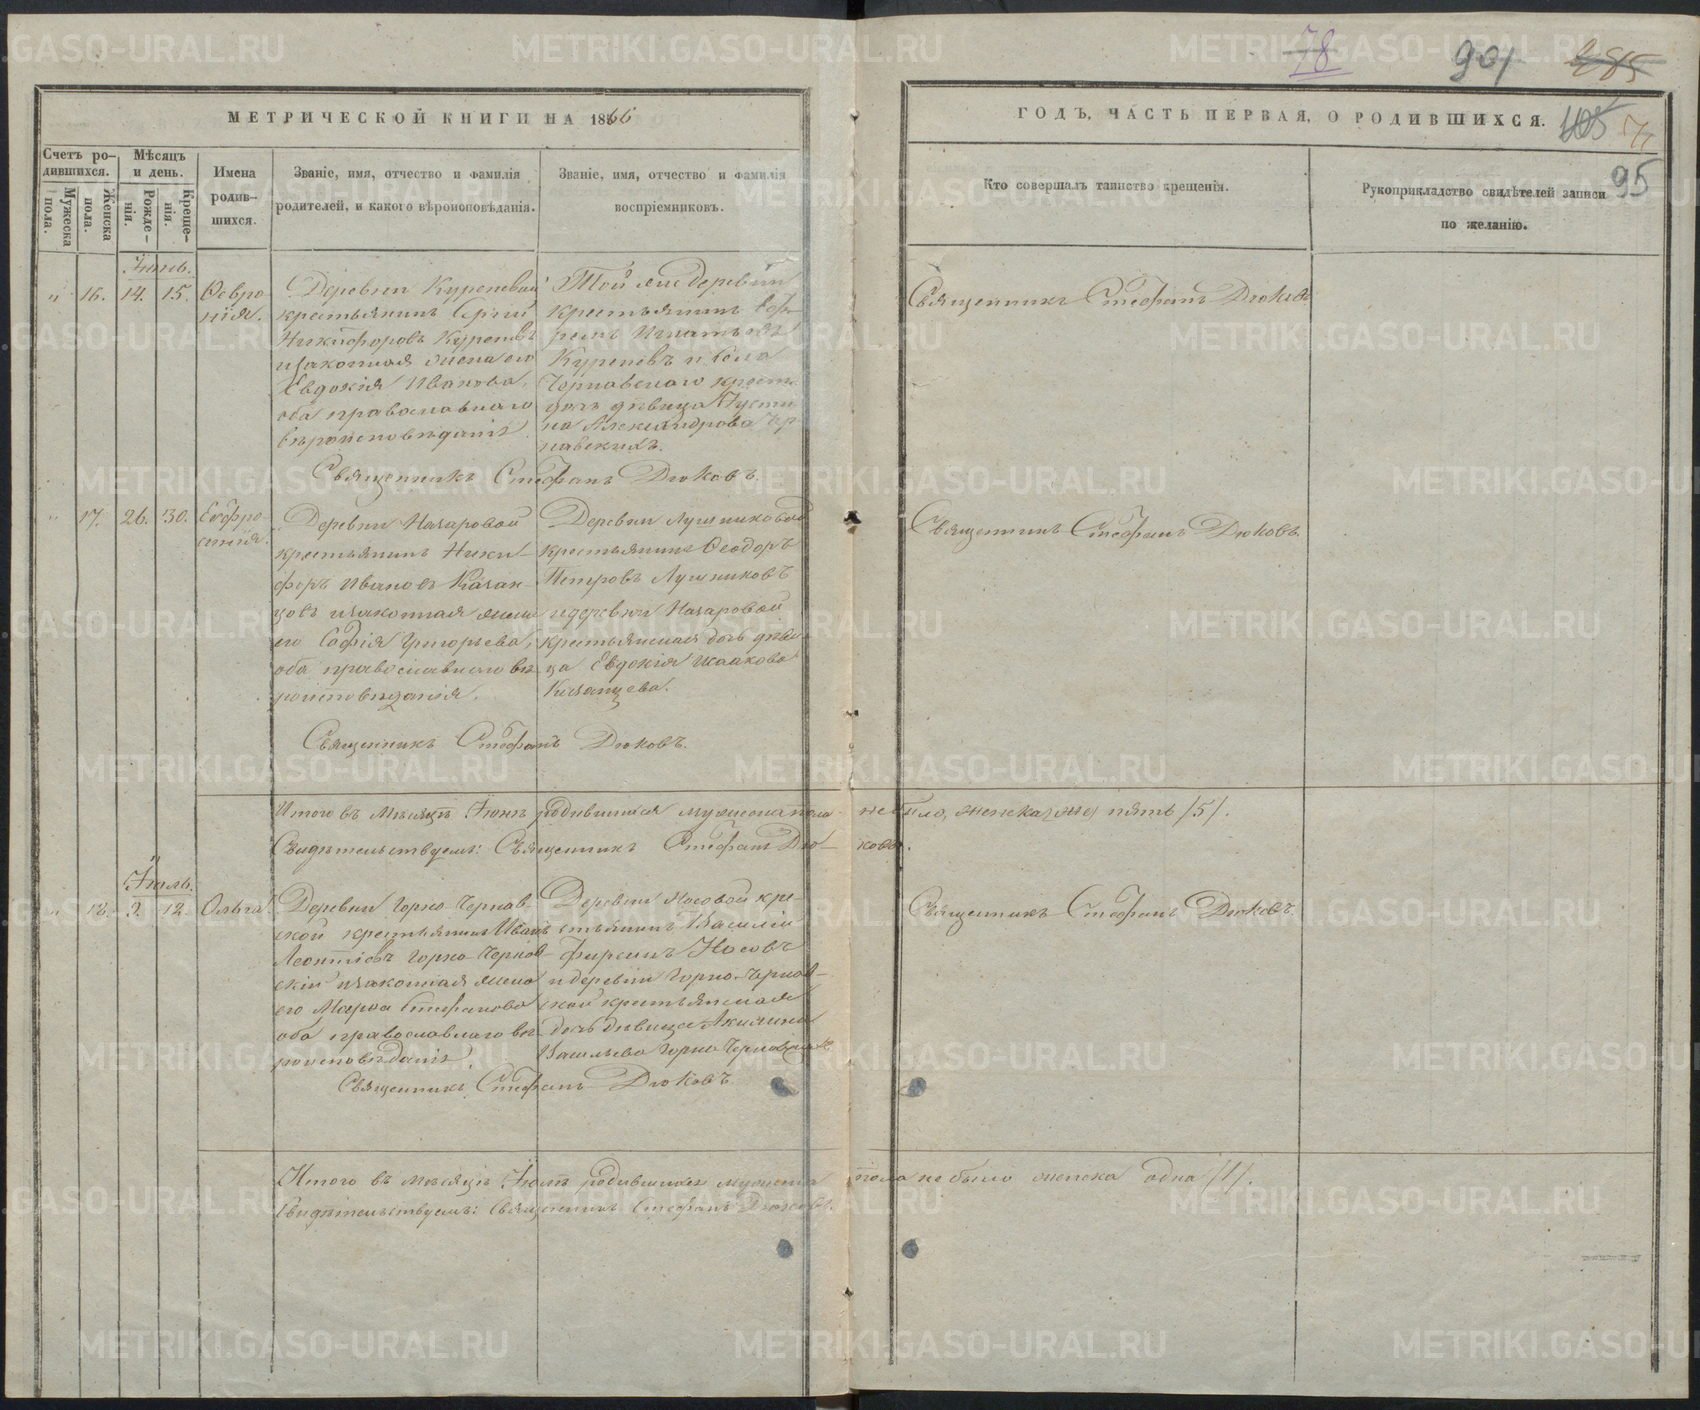 78
901
285
МЕТРИЧЕСКОЙ КНИГИ НА 1866
ГОДЪ, ЧАСТЬ ПЕРВАЯ, О РОДИВШИХСЯ.
105
95
Счетъ ро-
дившихся.
Мужеска
пола.
Женска
пола.
Мѣсяцъ
и день.
Рожде-
нія.
Креще-
нія.
Имена
родив-
шихся.
Званіе, имя, отчество и фамилія
родителей, и какого вѣроисповѣданія.
Званіе, имя, отчество и фамилія
воспріемниковъ.
Кто совершалъ таинство крещенія.
Рукоприкладство свидѣтелей записи
по желанію.
Іюнь.
" 16. 14. 15. Ѳевро
нія.
Деревни Куреневой
крестьянинъ
Никифоровъ Куреневъ
и законная жена его
Евдокія Иванова,
оба православнаго
вѣроисповѣданія.
Той же деревни
крестьянинъ
Игнатьевъ
Куреневъ и села
Чернавскаго крест.
дочь дѣвица
Александрова
навскихъ.
Священникъ Стефанъ Дюковъ.
Священникъ Стефанъ Дюковъ
" 17. 26. 30. Евфро
синія.
Деревни Назаровой
крестьянинъ Ники-
форъ Ивановъ Казан-
цовъ и законная жена
его Софія Григорьева,
оба православнаго вѣ-
роисповѣданія.
Деревни Лушниковой
крестьянинъ Ѳеодоръ
Петровъ Лушниковъ
и деревни Назаровой
крестьянская дочь дѣви-
ца Евдокія Исаакова
Казанцева.
Священникъ Стефанъ Дюковъ.
Священникъ Стефанъ Дюковъ
Итого въ мѣсяцѣ Іюнѣ родившихся мужеска пола не было, женска же пять /5/.
Свидѣтельствуемъ: Священникъ Стефанъ Дюковъ.
Іюль.
" 18. 9. 12. Ольга
Деревни Горно-Чернав-
ской крестьянинъ Иванъ
Леонтіевъ Горно-Чернов-
скій и законная жена
его Марѳа Стефанова
оба православнаго вѣ-
роисповѣданія.
Деревни Носовой кре-
стьянинъ Василій
Фирсинъ Носовъ
и деревни Горно-Чернав-
ской крестьянская
дочь дѣвица Акилина
Васильева Горно-Черновская
Священникъ Стефанъ Дюковъ
Священникъ Стефанъ Дюковъ.
Итого въ мѣсяцѣ Іюлѣ родившихся мужеска пола не было женска одна /1/.
Свидѣтельствуемъ: Священникъ Стефанъ Дюковъ.
METRIKI.GASO-URAL.RU